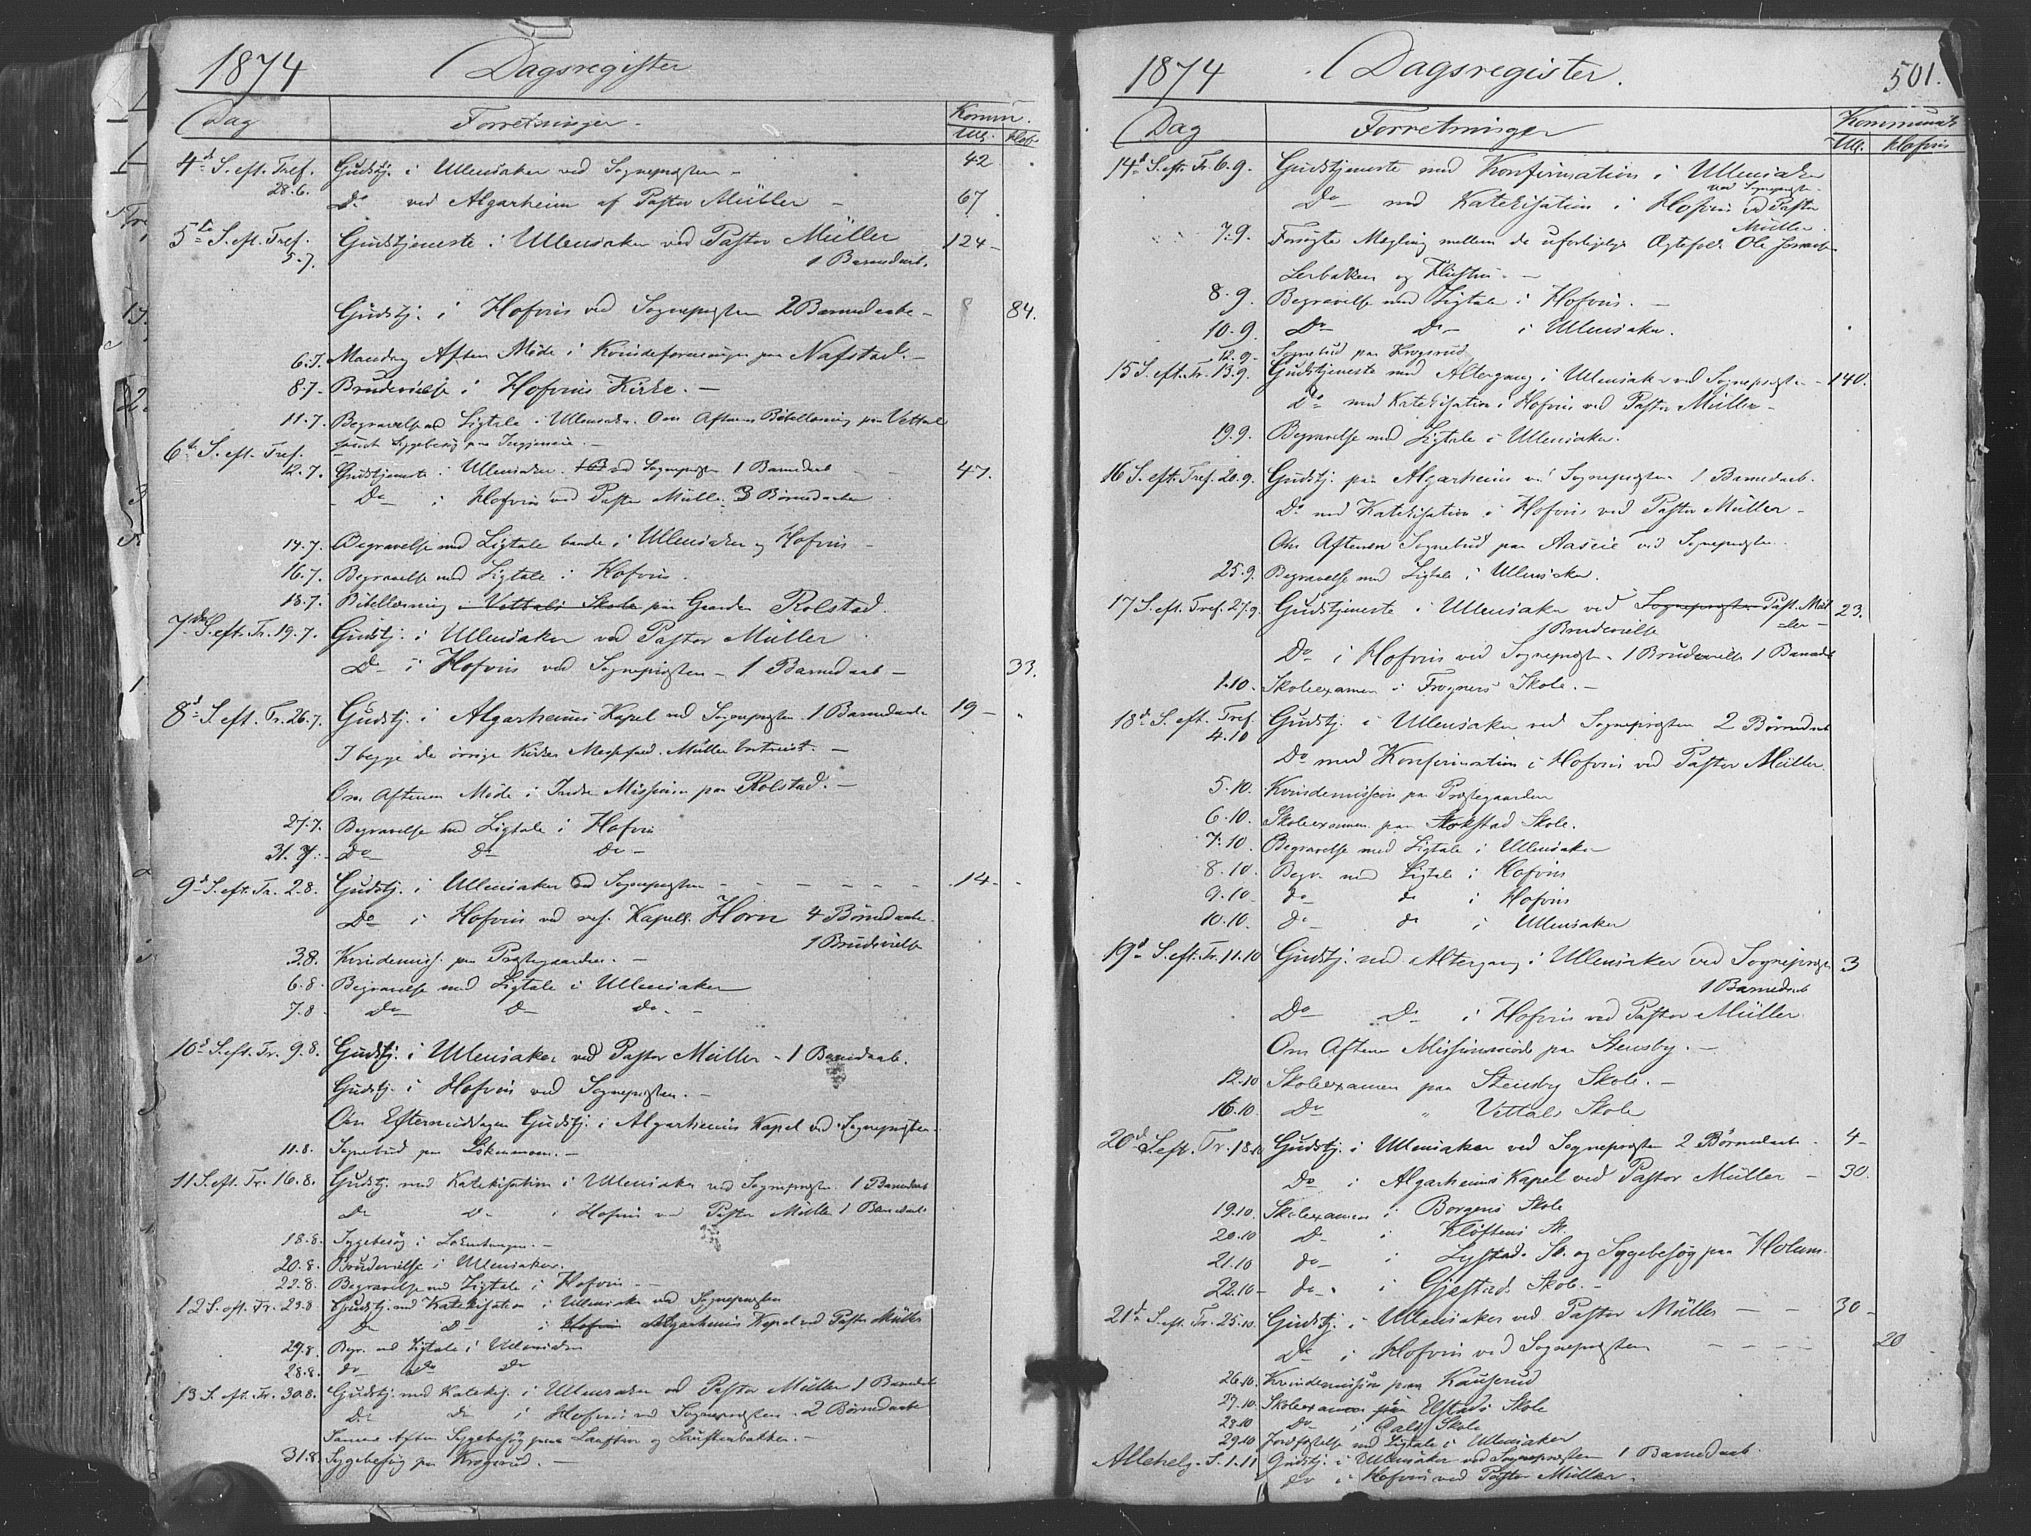 1874 Dagsregister
Dag Forretninger. Komm.
Ull. Hofv.
4d S. eft. Tref. Gudstj. i Ullensaker ved Sognepresten – 42
28.6. Do ved Algarheim af Pastor Müller – 67
5te S. eft. Tref. Gudstjeneste i Ullensaker ved Pastor Müller 124–
5.7. 1 Barnedaab.
Gudstj. i Hofvin ved Sognepresten 2 Barnedaabe – 84.
6.7. Mandag Aften Møde i Kvindeforeningen paa Nafstad. –
8.7. Brudevielse i Hofvins Kirke. –
11.7. Begravelse med Ligtale i Ullensaker. Om Aftenen Bibellæsning paa Vettal
samt Sygebesøg paa
6te S. eft. Tref.
12.7. Gudstjeneste i Ullensaker ved Sognepresten 1 Barnedaab 47.
Do i Hofvin ved Pastor Müller 3 Børnedaabe
14.7. Begravelse med Ligtale baade i Ullensaker og Hofvin –
16.7. Begravelse med Ligtale i Hofvin.
18.7. Bibellæsning Vettals Skole paa Gaarden Rolstad.
7de S. eft. Tr. 19.7. Gudstj. i Ullensaker ved Pastor Müller
Do i Hofvin ved Sognepresten – 1 Barnedaab – 33.
8d S. eft. Tr. 26.7. Gudstj. i Algarheims Kapel ved Sognepresten 1 Barnedaab 19 –
I begge de øvrige Kirker Messefald. Müller bortreist. –
Om Aftenen Møde i Indre Mission paa Rolstad. –
27.7. Begravelse med Ligtale i Hofvin
31.7. Do Do Do –
9d S. eft. Tr. 2.8. Gudstj. i Ullensaker ved Sognepresten – – – – – – 14 –
Do i Hofvin ved res. Kapell. Horn 4 Børnedaabe
1 Brudevielse
3.8. Kvindemiss. paa Præstegaarden. –
6.8. Begravelse med Ligtale i Ullensaker
7.8 Do D Do. –
10d S. eft. Tr. 9.8. Gudstj. i Ullensaker ved Pastor Müller – 1 Barnedaab.
Gudstj. i Hofvin ved Sognepresten. –
Om Eftermiddagen Gudstj. i Algarheims Kapel ved Sognepresten
11.8. Sognebud paa
11 S. eft. Tr. 16.8. Gudstj. med Katekisation i Ullensaker ved Sognepresten 1 Barnedaab
Do D – i Hofvin ved Pastor Müller 1 Barnedaab
18.8. Sygebesøg i
20.8. Brudevielse i Ullensaker.
22.8. Begravelse med Ligtale i Hofvin. –
12 S. eft. Tr. 23.8 Gudstj. med Katekisation i Ullensaker ved Sognepresten
Do D – i Hofvin Algarheims Kapel ved Pastor Müller
29.8. Begr. med Ligtale i Ullensaker
28.8. do do Do
13 S. eft. Tr. 30.8. Gudstj. med Katekis. i Ullensaker ved Pastor Müller 1 Barnedaab
Do Do i Hofvin ved Sognepresten. 2 Børnedaabe
Samme Aften Sygebesøg paa
31.8. Sygebesøg paa Krogsrud. –
1874 Dagsregister. 501.
Dag Forretninger Kommunik.
Ull. Hofvin
14d S. eft. Tr. 6.9. Gudstjeneste med Konfirmation i Ullensaker
ved Sognepresten
Do med Katekisation i Hofvin ved Pastor
Müller.
7.9. Forsøgte Mægling mellem de uforligelige Ægtefolk Ole
Lerbakken og Hustru. –
8.9. Begravelse med Ligtale i Hofvin. –
10.9. Do Do – i Ullensaker.
12.9. Sognebud paa Krogsrud
15 S. eft. Tr. 13.9. Gudstjeneste med Altergang i Ullensaker ved Sognepresten – 140.
Do med Katekisation i Hofvin ved Pastor Müller –
19.9. Begravelse med Ligtale i Ullensaker.
16 S. eft. Tref. 20.9. Gudstj. paa Algarheim ved Sognepresten 1 Barnedaab.
Do med Katekisation i Hofvin ved Pastor Müller –
Om Aftenen Sognebud paa Aaseie ved Sognepresten.
25.9. Begravelse med Ligtale i Ullensaker.
17 S. eft. Tref. 27.9. Gudstjeneste i Ullensaker ved Sognepresten Past. Mül 23.
1 Brudevielse ler –
Do i Hofvin ved Sognepresten – 1 Brudevielse 1 Barnedaab
1.10. Skoleexamen i Frogners Skole. –
18d S. eft. Tref. Gudstj. i Ullensaker ved Sognepresten 2 Børnedaab
4.10 Do med Konfirmation i Hofvin ved Pastor Müller.
5.10. Kvindemission paa Præstegaarden
6.10. Skoleexamen paa Skole.
7.10. Begravelse med Ligtale i Ullensaker
8.10. Begr. med Ligtale i Hofvin
9.10. do do i Hofvin
10.10. do do i Ullensaker
19d S. eft. Tr. 11.10 Gudstj. med Altergang i Ullensaker ved Sognepresten 3
1 Barnedaab
Do Do i Hofvin ved Pastor Müller.
Om Aftenen Missionsmøde paa Stensby. –
12.10 Skoleexamen paa Stensby Skole. –
16.10. Do „ Vettals Skole
20d S. eft. Tr. 18.10 Gudstj. i Ullensaker ved Sognepresten 2 Børnedaab – 4 –
Do i Algarheims Kapel ved Pastor Müller – 30.
19.10. Skoleexamen i Borgens Skole
20.10 D – i Kløftens Sk.
21.10 do – i Lystads Sk. og Sygebesøg paa Holum.
22.10 – do – i Gjestads Skole. –
21d S. eft. Tr. 25.10. Gudstj. i Ullensaker ved Pastor Müller – – 30 –
Do i Hofvin ved Sognepresten – – – – 20
26.10. Kvindemission paa Kauserud
27.10. Skoleexamen paa Elstads Skole
28.10 Do i Dals Skole
29.10 Jordfæstelse med Ligtale i Ullensaker
Allehelg. S. 1.11 Gudstj. i Ullensaker ved Sognepresten 1 Barnedaab.
do i Hofvin ved Pastor Müller –